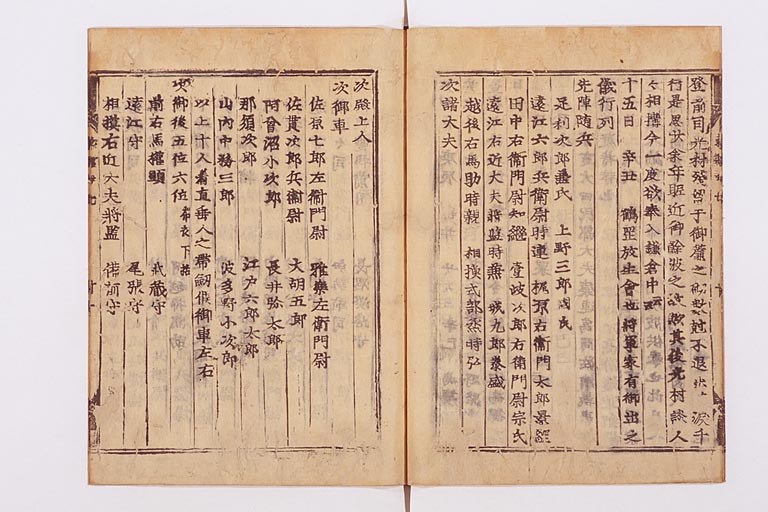 登前司光村祭留于御簾之砌敷刻不退落涙千
行是思廿余年昵近御餘波之故歟其後光村談人
相搆今一度欲奉入鎌倉中云
十五日 辛丑 鶴岡放生會也將軍家有御出之
儀行列
先陣随兵
足利次郎兼氏 上野三郎國氏
遠江六郎兵衛尉時連 梶原右衛門太郎景綱
田中右衛門尉知継 壹岐次郎右衛門尉宗氏
遠江右近大夫將監時兼 城九郎泰盛
越後右馬助時親 相摸式部丞時弘
次諸大夫
次殿上人
次御車
佐原七郎左衛門尉 雅樂左衛門尉
佐貫次郎兵衛尉 大胡五郎
阿曽沼小次郎 長井弥太郎
那須次郎 江戸六郎太郎
山内中務三郎 波多野小次郎
以上十人着直垂人之帶劔候御車左右
次御後五位六位 布衣下括
前右馬権頭 武蔵守
遠江守 尾張守
相摸右近大夫將監 備前守